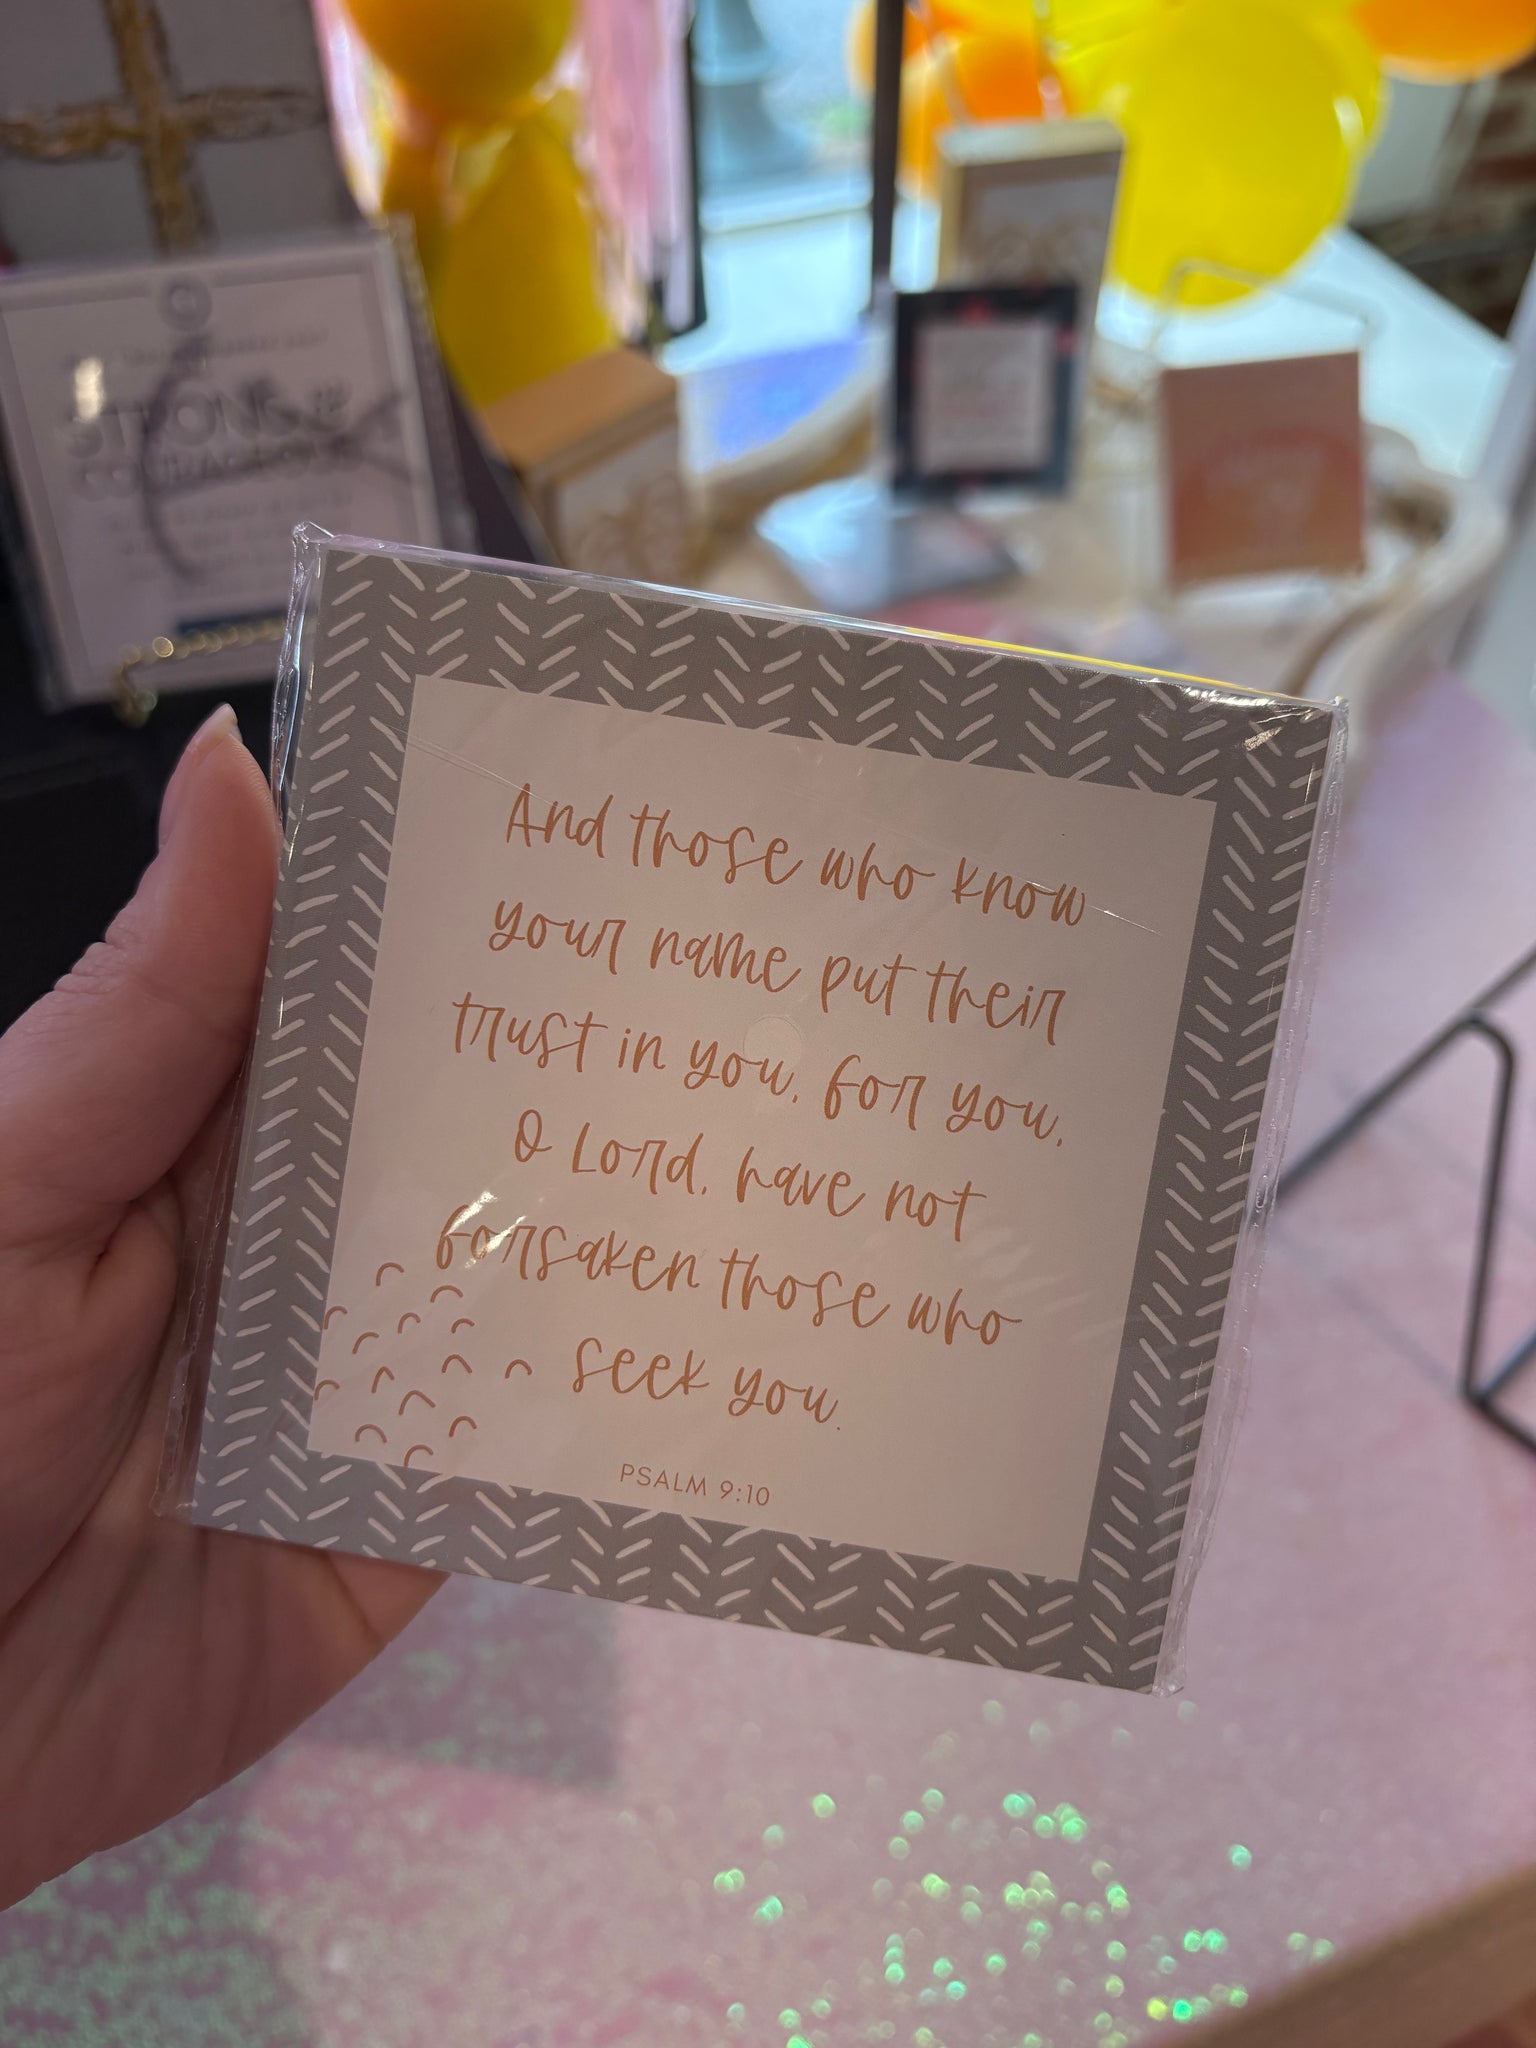 STRONG &
COURAGEOUS
And those who know
your name put their
trust in you, for you,
O Lord, have not
forsaken those who
seek you.
PSALM 9:10